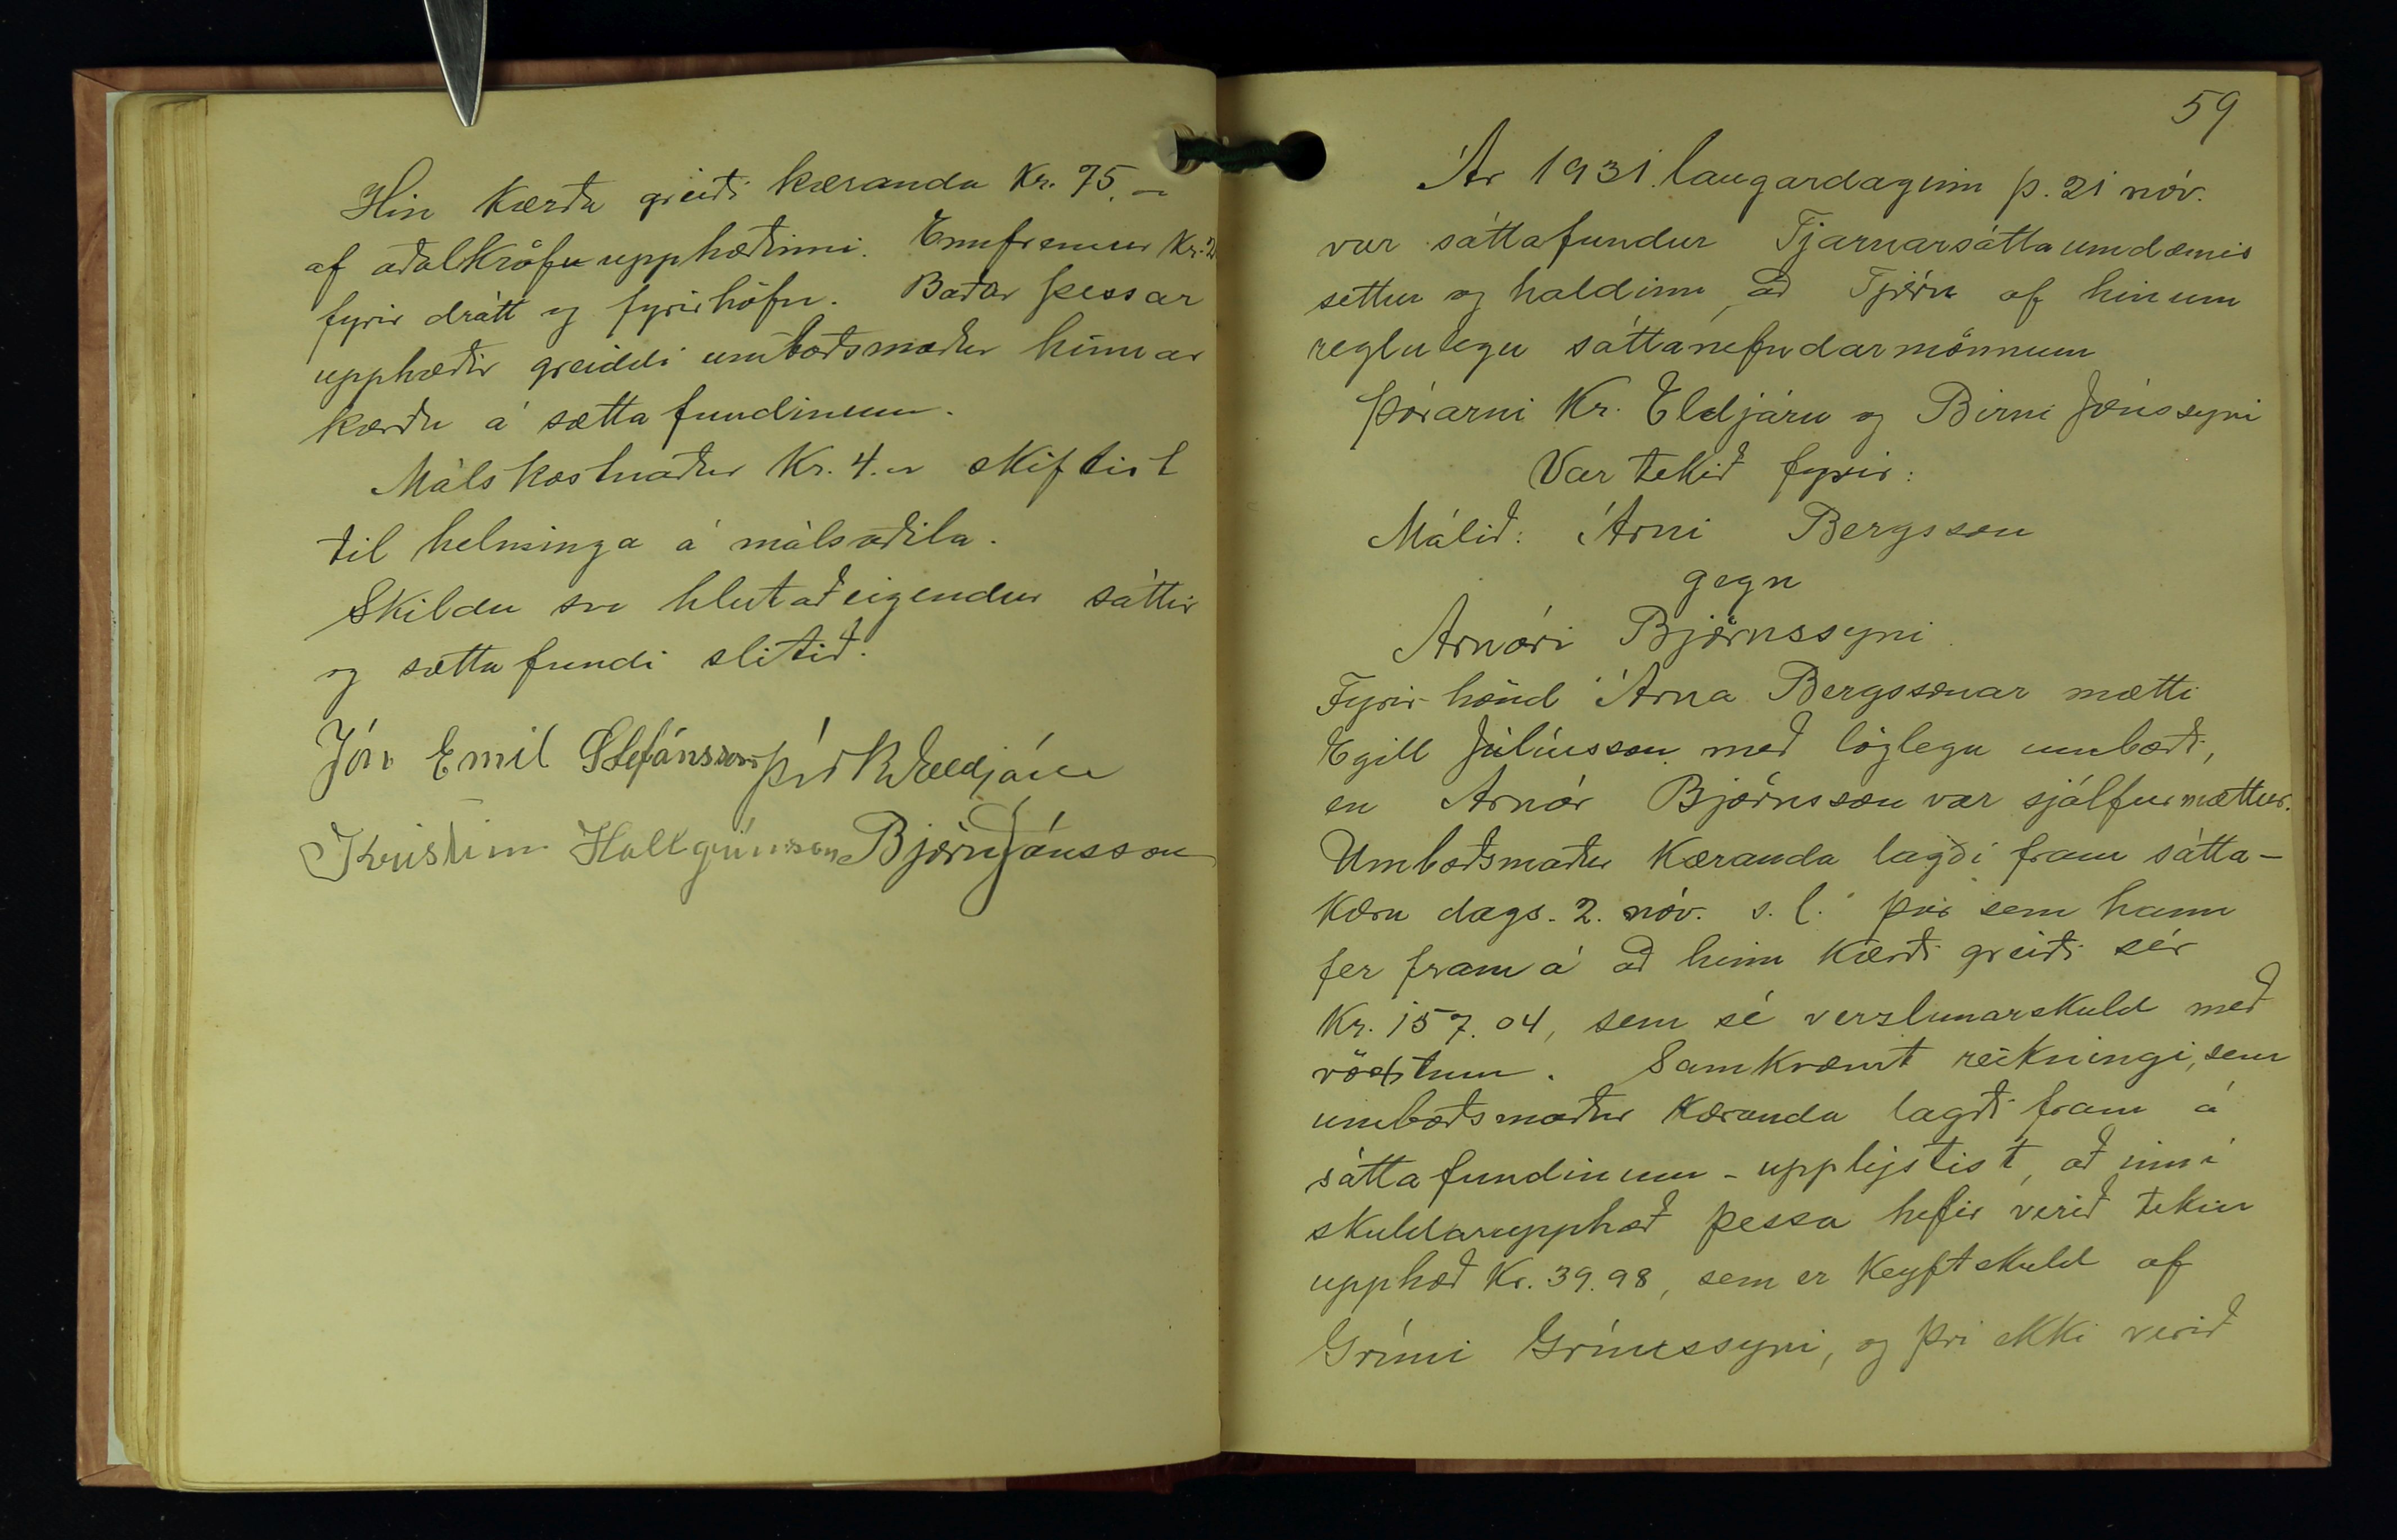 Hin kærða greiði kæranda Kr. 75.-
af aðalkröfuupphæðinni. Ennfremur Kr. 2
fyrir drátt og fyrirhöfn. Báðar þessar
upphæðir greiddi umboðsmaður hinnar
kærðu á sættafundinum.
Málskostnaður Kr. 4.- skiftist
til helminga á málsaðila.
Skildu svo hlutaðeigendur sáttir
og sættafundi slitið.
Jón Emil Stefánsson Þór Kr Eldjárn
Kristinn Hallgrímsson Björn Jónsson
59
Ár 1931. laugardaginn þ. 21 nóv.
var sáttafundur Tjarnarsáttaumdæmis
settur og haldinn að Tjörn af hinum
reglulegu sáttanefndarmönnum
Þórarni Kr. Eldjárn og Birni Jónssyni
Var tekið fyrir:
Málið: Árni Bergsson
gegn
Arnóri Björnssyni
Fyrir hönd Árna Bergssonar mætti
Egill Júlíusson með löglegu umboði,
en Arnór Björnsson var sjálfur mættur.
Umboðsmaður kæranda lagði fram sátta-
kæru dags. 2. nóv. s.l. þar sem hann
fer fram á að hinn kærði greiði sér
Kr. 157.04, sem sé verzlunarskuld með
vöxtum. Samkvæmt reikningi, sem
umboðsmaður kæranda lagði fram á
sáttafundinum - upplýstist, að inn í
skuldarupphæð þessa hefir verið tekin
upphæð Kr. 39.98, sem er keypt skuld af
Grími Grímssyni, og því ekki verið